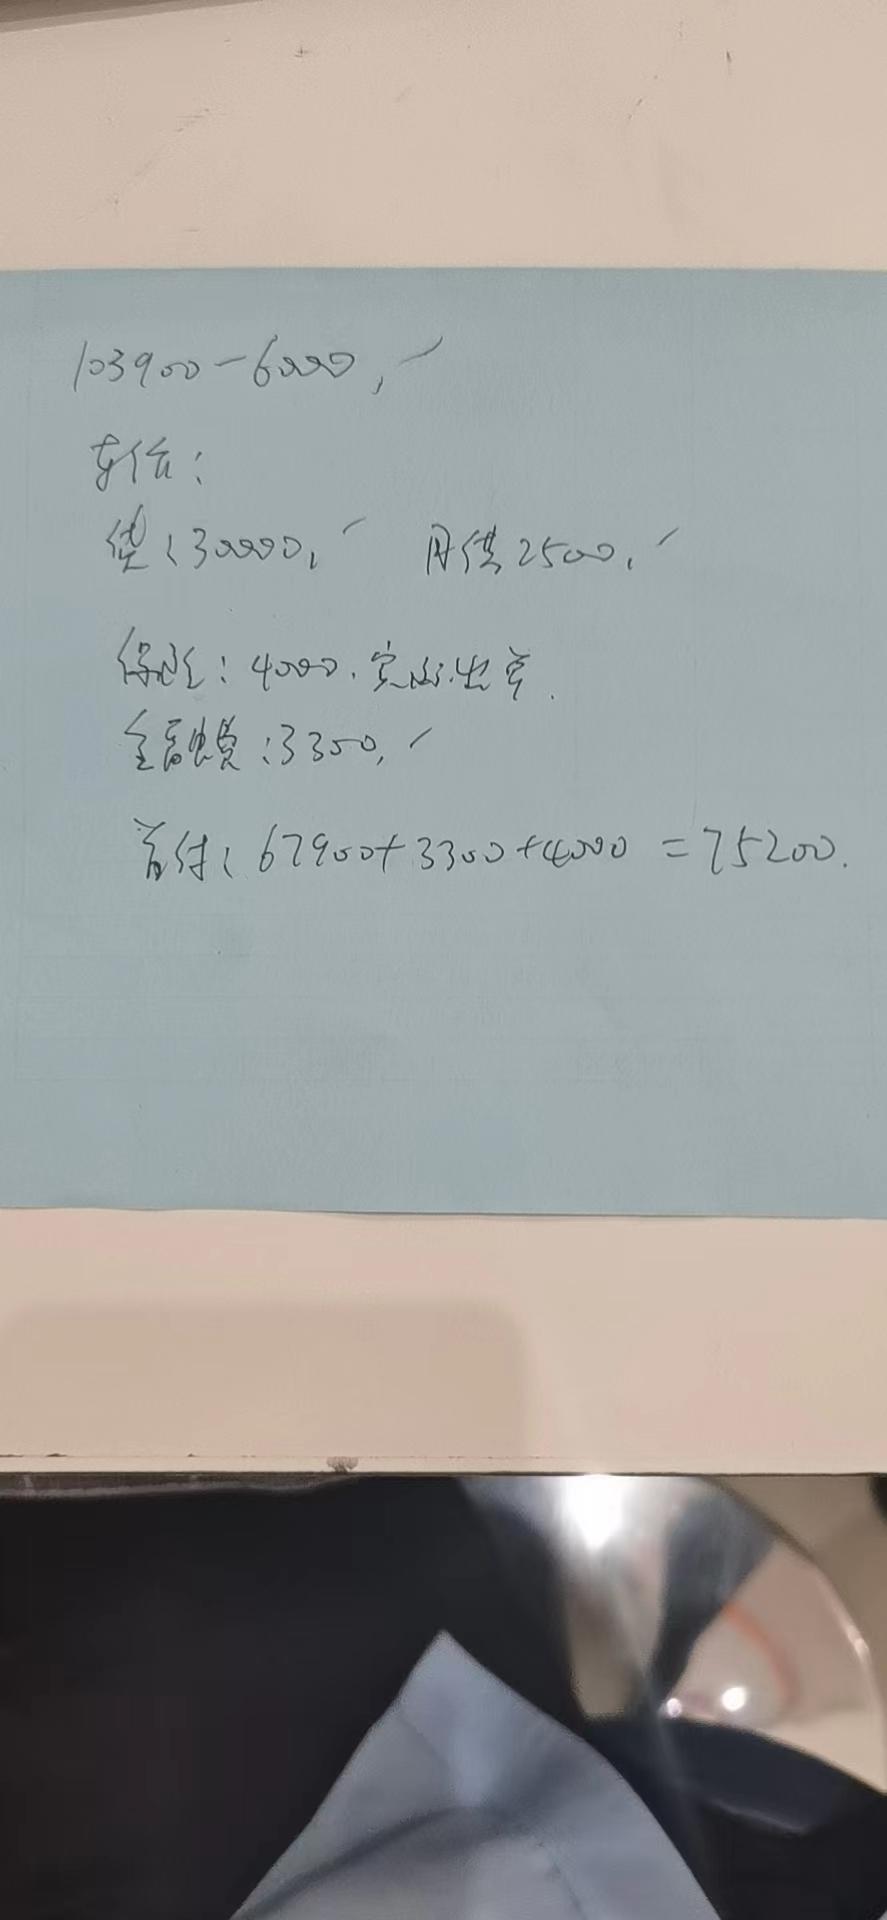 103900-6000,
车价:
贷:30000, 月供2500,
保险:4000.实际出单.
金融费:3300,
首付:67900+3300+4000=75200.